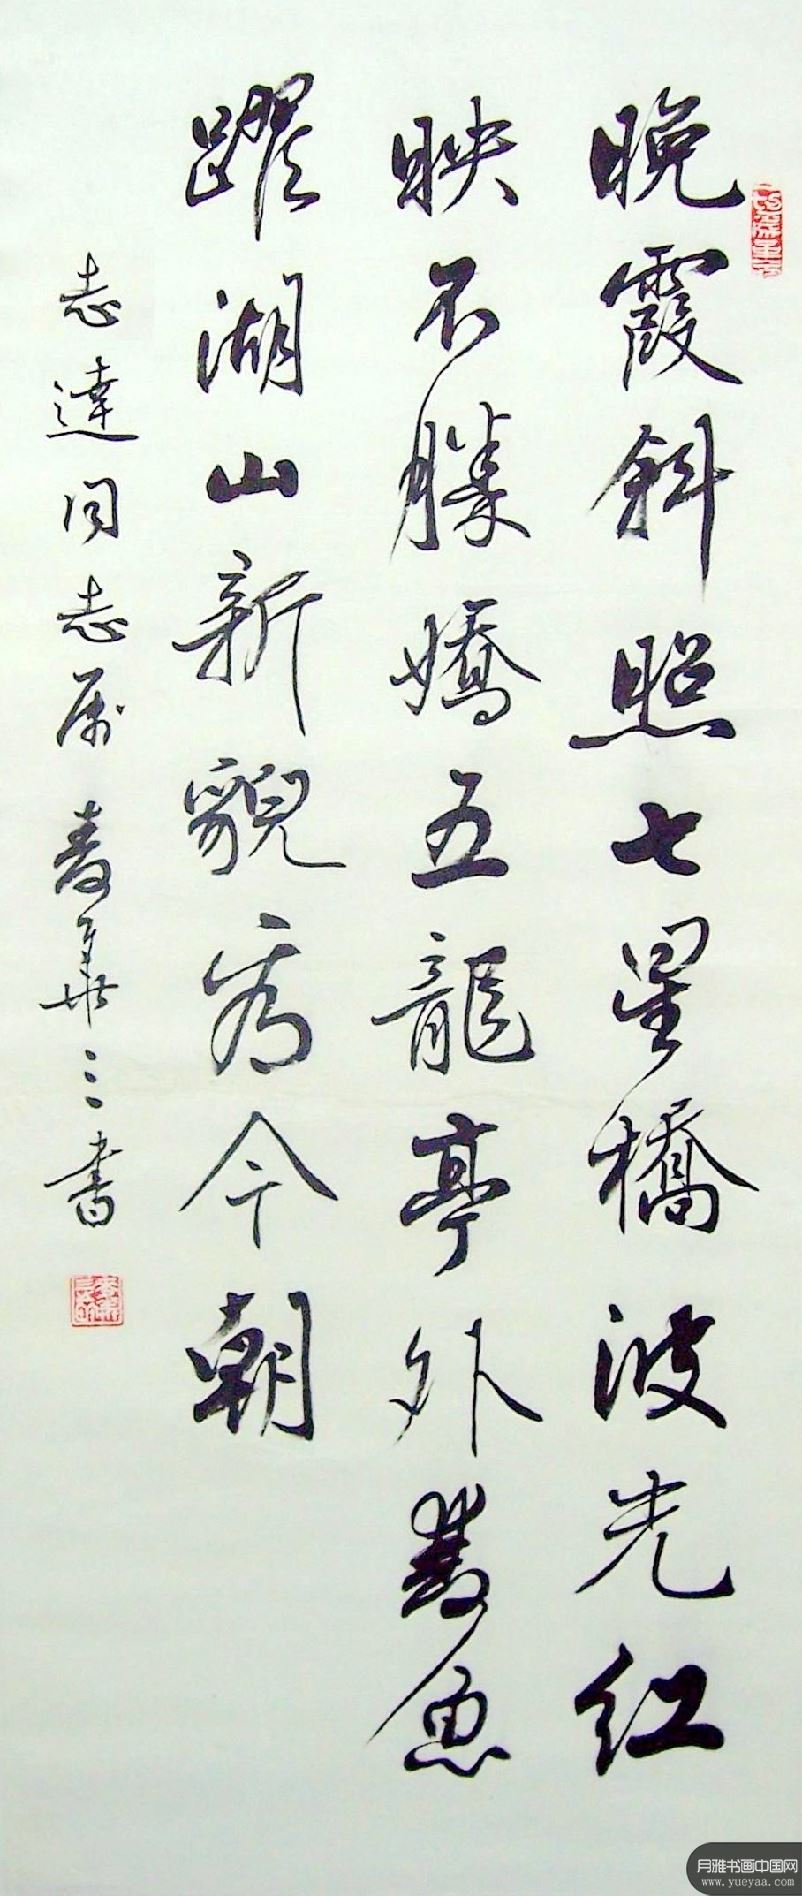 晚霞斜照七星橋波光红
映不勝嬌五龍亭外雙魚
躍湖山新貌看今朝
志達同志属 麦華三书
月雅书画中国网
www.yueyaa.com